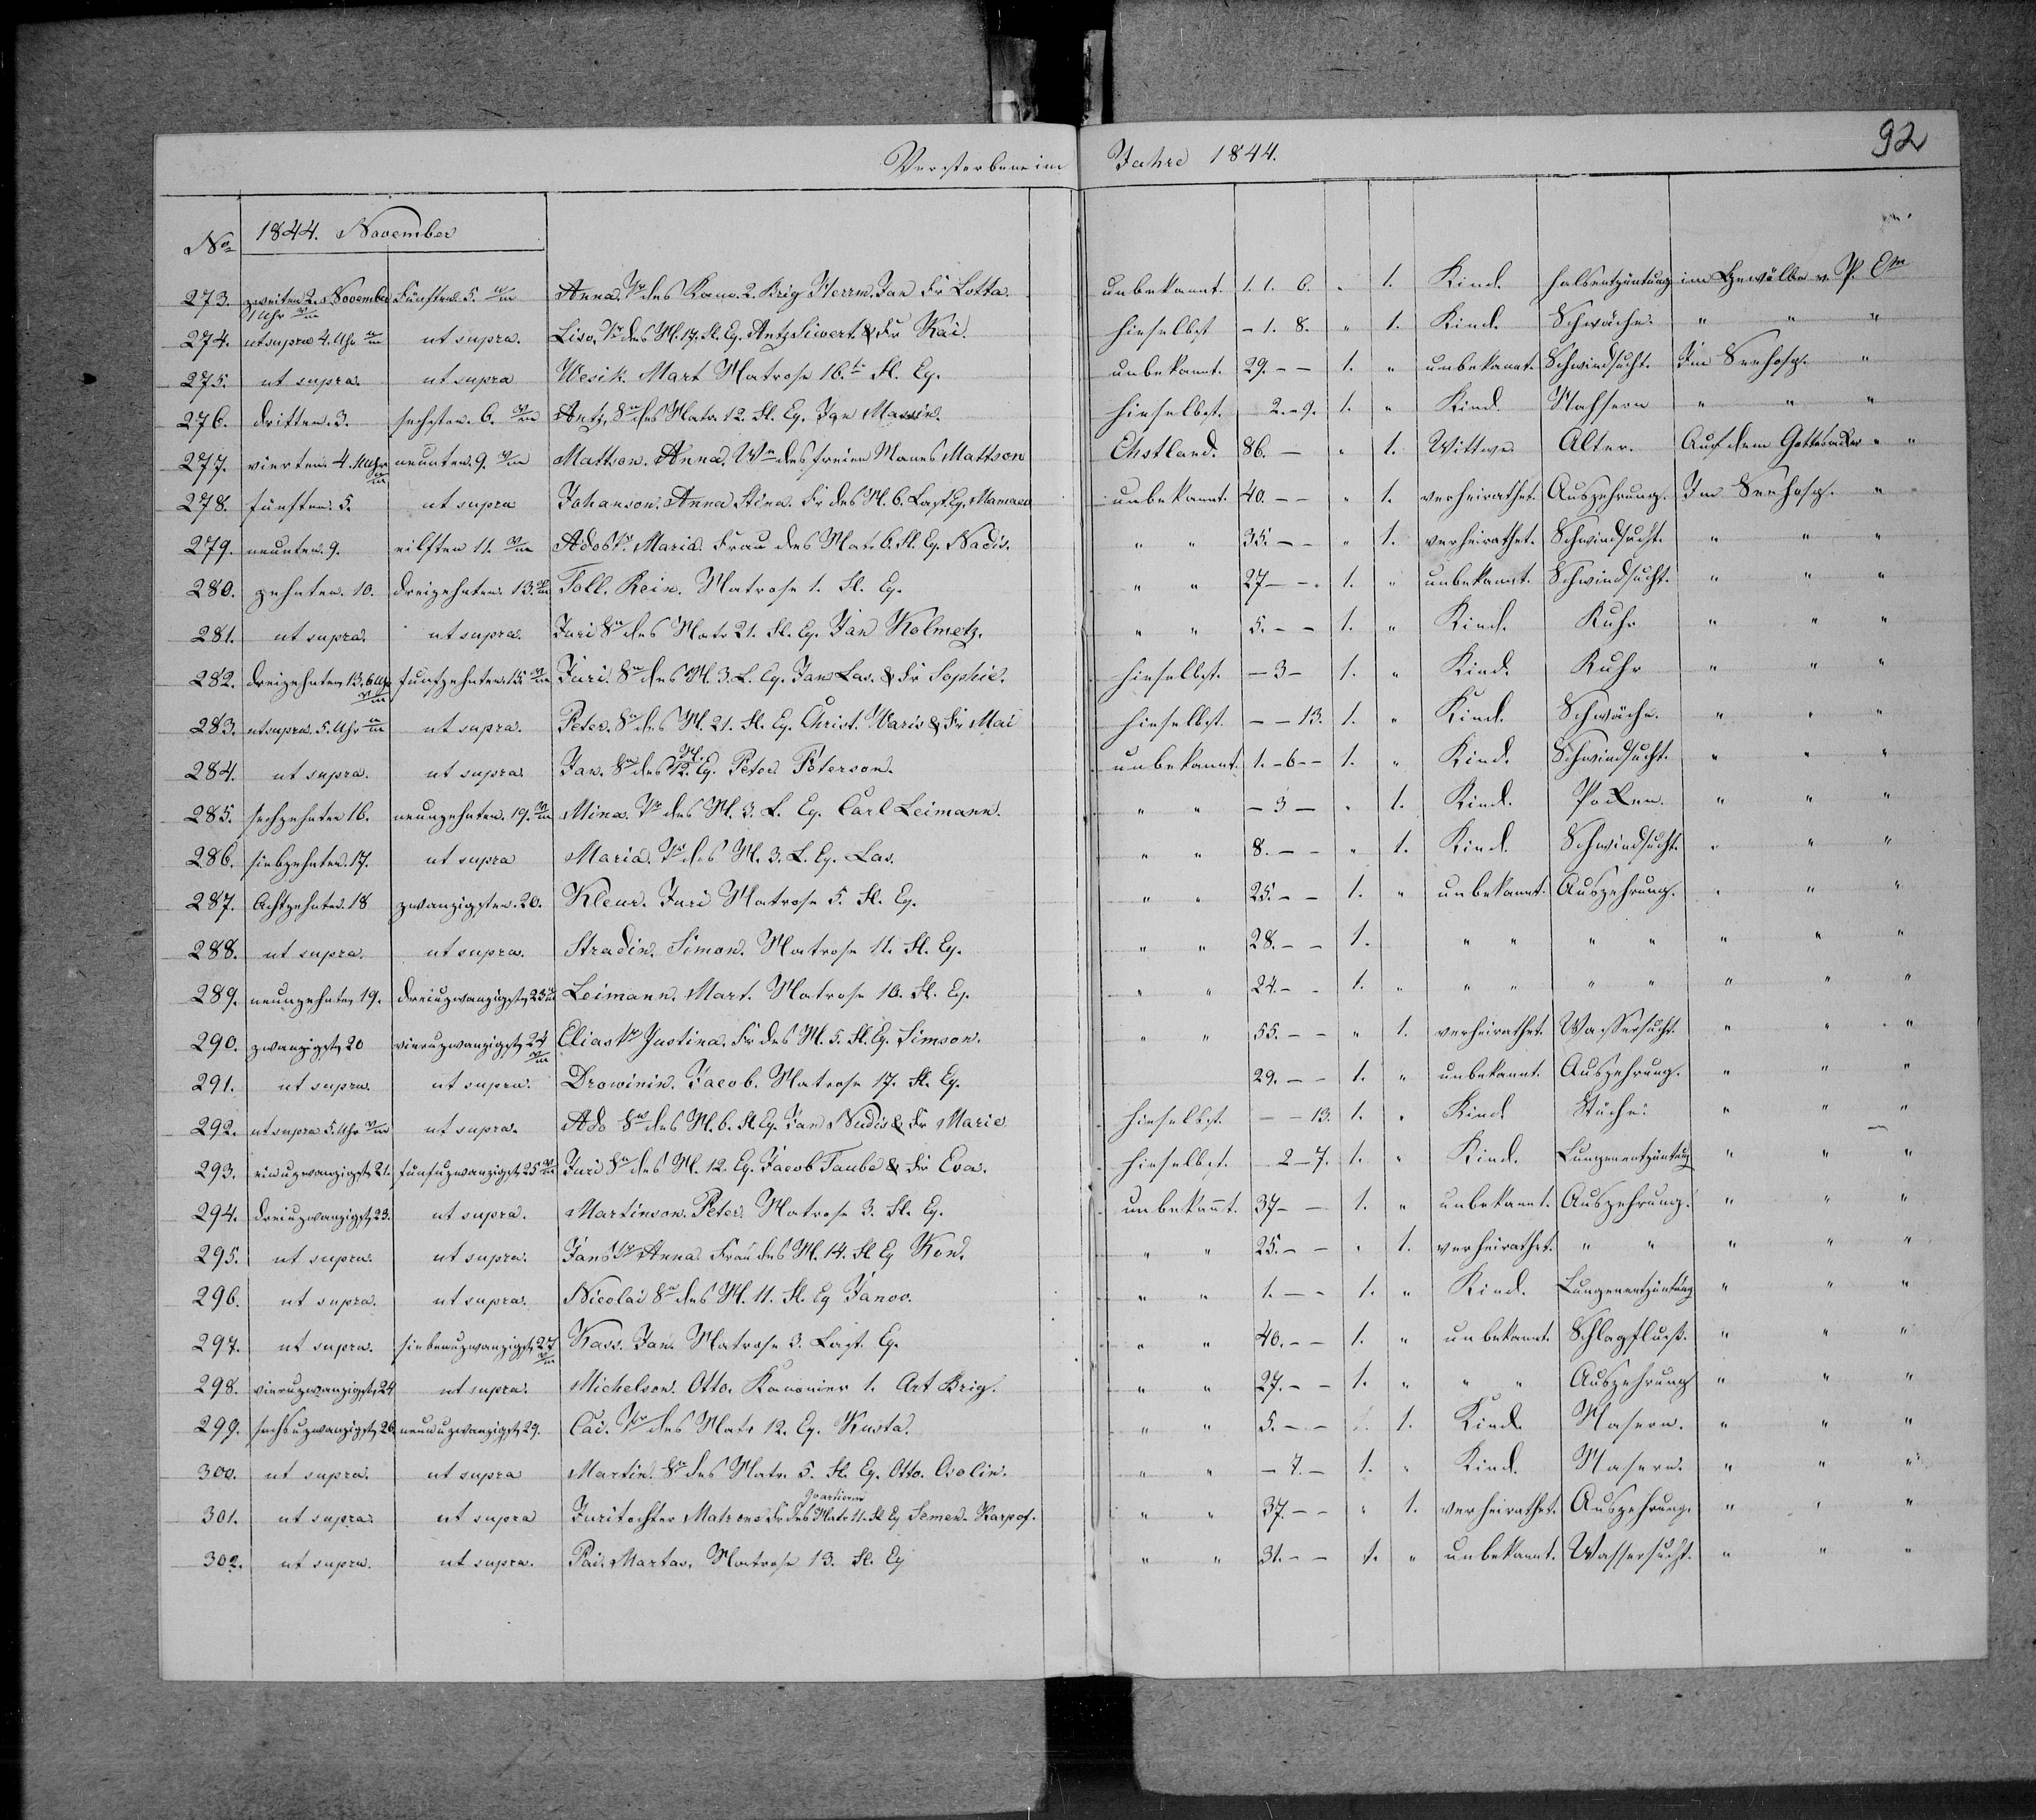 92
Verstorbene im Jahre 1844.
No 1844. November
273. zweiten 2. November 1 Uhr Fünften 5. Anna. Tr des Kano. 2. Brig Herrm. Jan Fr Lotta. unbekannt. 1. 1. 6. " 1. Kind. Halsentzüntung im Gewölbe v. P.
274. ut supra 4. Uhr ut supra. Liso. Tr des M. 17. Fl. Eq. Antz Siwert & Fr Kai. hieselbst - 1. 8. " 1. Kind. Schwäche. " " "
275. ut supra. ut supra Wesik. Mart Matrose 16. Fl. Eq. unbekannt. 29. - - 1. " unbekannt. Schwindsucht. Im Seehosp. "
276. dritten. 3. sechsten. 6. Antz, Sn des Matr. 12. Fl. Eq. Jan Massin. hieselbst. 2. - 9. 1. " Kind. Mahsern " " "
277. vierten 4. Uhr neunten. 9. Mattson. Anna. We des freien Manes Mattson Ehstland. 86. - " 1. Wittwe. Alter. Auf dem Gottesacker " "
278. fünften. 5. ut supra Johanson. Anna Stina. Fr des M. 6. Last. Eq. Mamaew unbekannt 40. - - " 1. verheirathet. Auszehrung. Im Seehosp. "
279. neunten. 9. eilften 11. Adostr. Maria. Frau des Matr. 6. Fl. Eq. Nadis. " " 35. - - " 1. verheirathet. Schwindsucht. " " "
280. zehnten. 10. dreizehnten. 13. Toll. Rein. Matrose 1. Fl. Eq. " " 27 - - 1. " unbekannt. Schwindsucht. " " "
281. ut supra. ut supra. Juri Sn des Matr 21. Fl. Eq. Jan Kolmetz. " " 5. - - 1. " Kind. Ruhr " " "
282. dreizehnten 13. 6 Uhr fünfzehnten. 15. Juri. Sn des M. 3. L. Eq. Jan Las. & Fr Sophie. hieselbst. - 3 - 1. " Kind. Ruhr " " "
283. ut supra. 5. Uhr ut supra. Peter. Sn des M. 21. Fl. Eq. Christ. Waris & Fr Mai hieselbst. - - 13. 1. " Kind. Schwäche. " " "
284. ut supra. ut supra. Jan. Sn des M. 12. Eq. Peter Peterson. unbekannt. 1. - 6 - - 1. " Kind. Schwindsucht. " " "
285. sechzehnten 16. neunzehnten. 19. Mina. Tr des M. 3. L. Eq. Carl Leimann. " " - 3 - " 1. Kind. Pocken. " " "
286. siebzehnten. 17. ut supra Maria. Tr des M. 3. L. Eq. Las. " " 8. - - " 1. Kind. Schwindsucht. " " "
287. Achtzehnten. 18 zwanzigsten. 20. Kleur. Juri Matrose 5. Fl. Eq. " " 25. - - 1. " unbekannt. Auszehrung. " " "
288. ut supra. ut supra. Stradin. Simon. Matrose 11. Fl. Eq. " " 28. - - 1. " " " " " " "
289. neunzehnten 19. dreiuzwanzigsten 23 Leimann. Mart. Matrose 10. Fl. Eq. " " 24. - - 1. " " " " " " " "
290. zwanzigsten 20 vieruzwanzigsten 24 Eliastr Justina. Fr des M. 5. Fl. Eq. Simson. " " 55. - - " 1. verheirathet. Wassersucht. " " "
291. ut supra. ut supra. Drowinin. Jacob. Matrose 17. Fl. Eq. 29. - - 1. " unbekannt. Auszehrung. " " "
292. ut supra 5. Uhr ut supra. Ado Sn des M. 6. Fl. Eq. Jan Nudis & Fr Marie hieselbst. - - 13. 1. " Kind " " "
293. einuzwanzigsten 21. fünfuzwanzigsten 25 Juri Sn des M. 12. Eq. Jacob Taube & Fr Eva. hieselbst. 2 - 7. 1. " Kind. Lungenentzüntung " " "
294. dreiuzwanzigsten 23. ut supra. Martinson. Peter. Matrose 3. Fl. Eq. unbekannt. 37 - - 1. " unbekannt. Auszehrung. " " "
295. ut supra. ut supra. Janstr Anna. Frau des M. 14. Fl Eq Kon. " " 25. - - " 1. verheirathet. " " " " "
296. ut supra. ut supra. Nicolai Sn des M. 11. Fl. Eq Janov. " " 1. - - 1. " Kind. Lungenentzüntung " " "
297. ut supra. siebenuzwanzigsten 27 Kass. Jan. Matrose 3. Last. Eq. " " 40. - - 1. " unbekannt. Schlagfluß. " " "
298. vieruzwanzigsten 24 ut supra. Michelson. Otto. Kanonier 1. Art Brig. " " 27. - - 1. " " " Auszehrung " " "
299. sechsuzwanzigsten 26. neunuzwanzigsten 29. Cai. Tr des Matr 12. Eq. Kusta. " " 5. - - 1. Kind. Masern. " " "
300. ut supra. ut supra Martin. Sn des Matr. 5. Fl. Eq. Otto. Osolin. " " - 7. - 1. " Kind. Masern. " " "
301. ut supra. ut supra Juritochter Matrone Fr des Quartierm Matr 11. Fl Eq Semen. Karpof. " " 37. - - " 1. verheirathet. Auszehrung. " " "
302. ut supra. ut supra. Pai. Martas, Matrose 13. Fl. Eq " " 31. - - 1. " unbekannt. Wassersucht. " " "